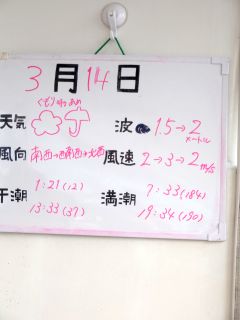 3月14日
くもり のち あめ
天気 波 1.5→2
メートル
風向 南西→西南西→北西 風速 2→3→2 m/s
干潮 1:21(12) 満潮 7:33(184)
13:33(37) 19:34(190)